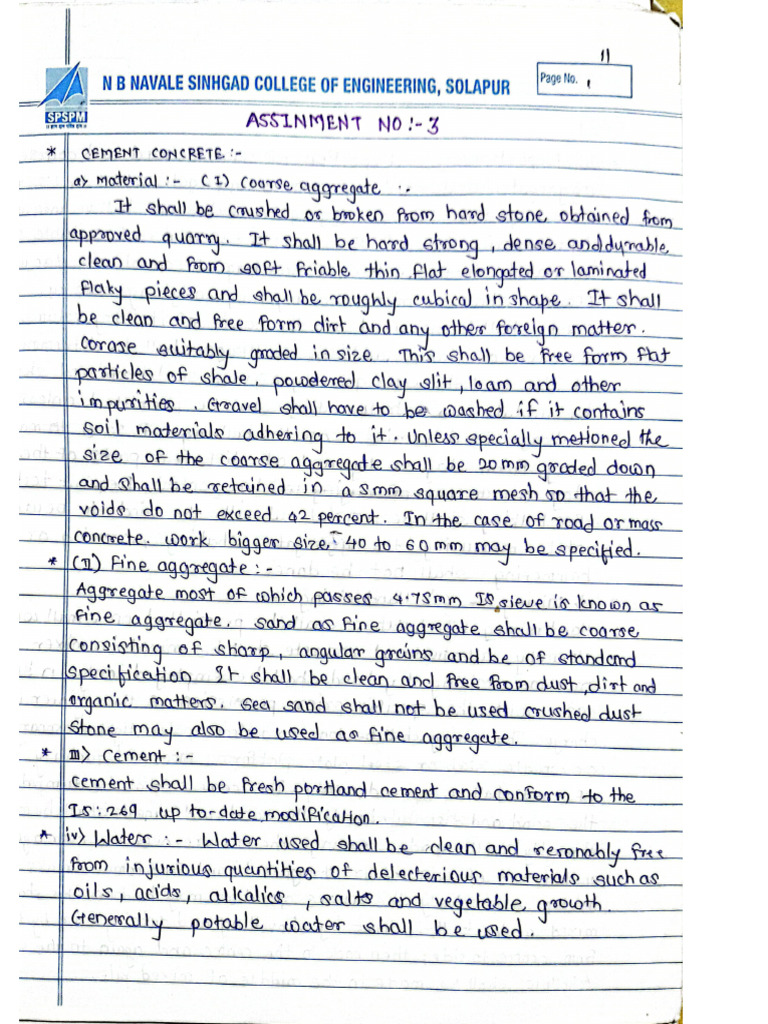 11
N B NAVALE SINHGAD COLLEGE OF ENGINEERING, SOLAPUR
Page No. 1
SPSPM
ASSINMENT NO:-3
* CEMENT CONCRETE :-
a) Material :- (I) Coarse aggregate :-
It shall be crushed or broken from hard stone obtained from
approved quarry. It shall be hard strong, dense and durable
clean and from soft friable thin flat elongated or laminated
flaky pieces and shall be roughly cubical in shape. It shall
be clean and free form dirt and any other foreign matter.
corase suitably graded in size. This shall be free form flat
particles of shale, powdered clay slit, loam and other
impurities. Gravel shall have to be washed if it contains
soil materials adhering to it. Unless specially metioned the
size of the coarse aggregate shall be 20mm graded down
and shall be retained in a 5mm square mesh so that the
voids do not exceed 42 percent. In the case of road or mass
concrete. work bigger size - 40 to 60 mm may be specified.
* (II) Fine aggregate :-
Aggregate most of which passes 4.75mm Is sieve is known as
fine aggregate. sand as fine aggregate shall be coarse
consisting of sharp, angular grains and be of standard
specification It shall be clean and free from dust, dirt and
organic matters. sea sand shall not be used crushed dust
stone may also be used as fine aggregate.
* III) Cement :-
cement shall be fresh portland cement and conform to the
Is: 269 up to-date modification.
* iv) Water :- Water used shall be clean and resonably free
from injurious quantities of delecterious materials such as
oils, acids, alkalics, salts and vegetable growth.
Generally potable water shall be used.